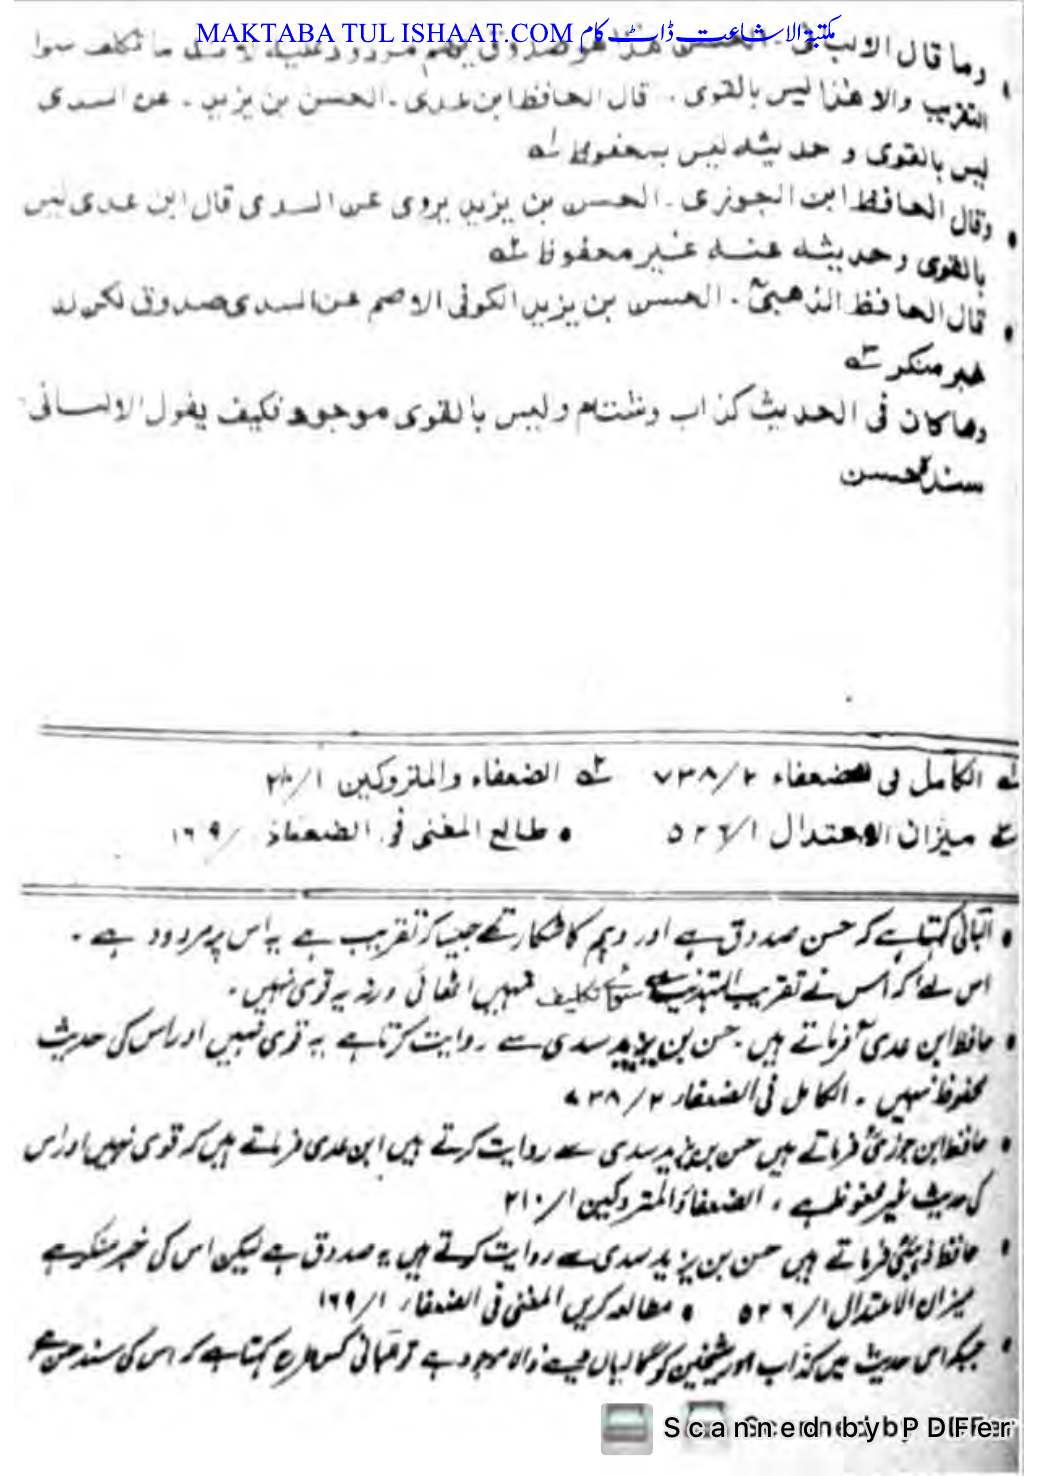 MAKTABA TUL ISHAAT.COM مكتبة الاشاعت ڈاٹ کام
وما قال الالبانی . الحسن هذا هو صدوق یهم مردود علیه لانه ما تكلف سوا
التقریب والا هذا لیس بالقوی . قال الحافظ ابن عدی . الحسن بن یزید . عن السدی
لیس بالقوی و حدیثه لیس بمحفوظ
وقال الحافظ ابن الجوزی . الحسن بن یزید یروی عن السدی قال ابن عدی لیس
بالقوی وحدیثه عنه غیر محفوظ
قال الحافظ الذهبیؒ . الحسن بن یزید الکوفی الاصم عن السدی صدوق لکن له
خبر منکر
وما کان فی الحدیث کذاب وشتام ولیس بالقوی موجود فکیف یقول الالبانی
سنده حسن
الکامل فی الضعفاء ۲/۷۳۸ الضعفاء والمتروکین ۱/
میزان الاعتدال ۱/۵۲۶ • طالع المغنی فی الضعفاء /۱۶۹
• البانی کہتا ہے کہ حسن صدوق ہے اور وہم کا شکار تھے جیسا کہ تقریب ہے یہ اس پر مردود ہے ۔
اس لیے کہ اس نے تقریب التہذیب سے سوائے تکلیف نہیں اٹھائی ورنہ یہ قوی نہیں ۔
• حافظ ابن عدیؒ فرماتے ہیں ۔ حسن بن یزید سدی سے روایت کرتا ہے یہ قوی نہیں اور اس کی حدیث
محفوظ نہیں ۔ الکامل فی الضعفاء ۲/۷۳۸
• حافظ ابن جوزیؒ فرماتے ہیں حسن بن یزید سدی سے روایت کرتے ہیں ابن عدی فرماتے ہیں کہ قوی نہیں اور اس
کی حدیث غیر محفوظ ہے ، الضعفاء والمتروکین ۱/۲۱۰
• حافظ ذہبیؒ فرماتے ہیں حسن بن یزید سدی سے روایت کرتے ہیں یہ صدوق ہے لیکن اس کی خبر منکر ہے
میزان الاعتدال ۱/۵۲۶ • مطالعہ کریں المغنی فی الضعفاء ۱/۱۶۹
• جبکہ اس حدیث میں کذاب اور شیخین کو گالیاں دینے والا موجود ہے تو البانی کس طرح کہتا ہے کہ اس کی سند حسن ہے
Scanned by PDFer